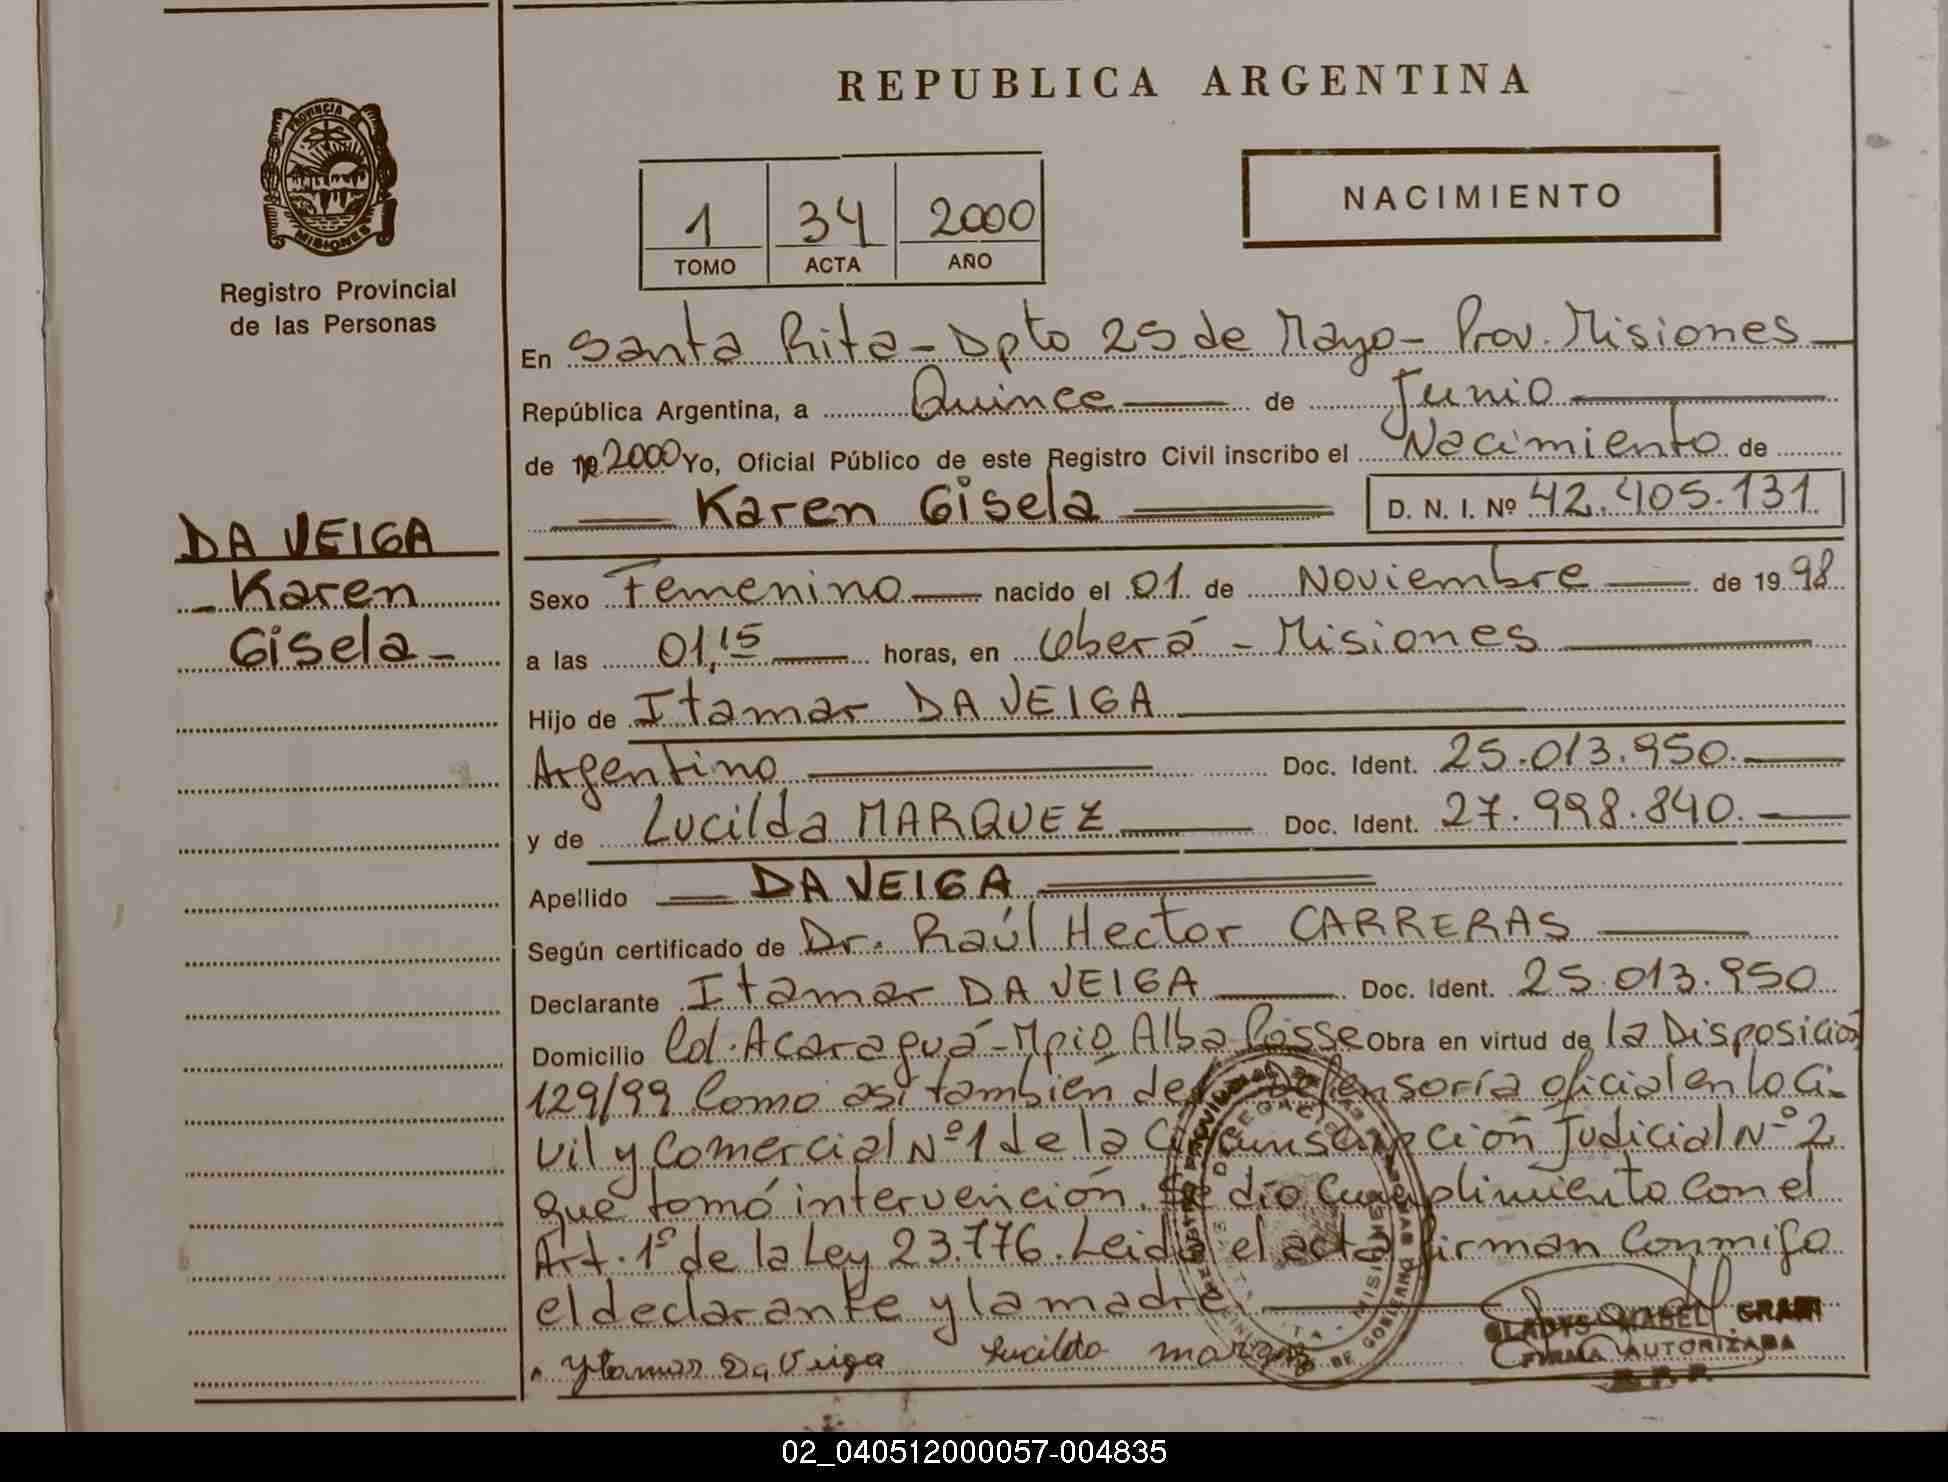 REPUBLICA ARGENTINA
PROVINCIA DE
MISIONES
Registro Provincial
de las Personas
1 34 2000
TOMO ACTA AÑO
NACIMIENTO
En Santa Rita - Dpto 25 de Mayo - Prov. Misiones
República Argentina, a Quince de Junio
de 2000 Yo, Oficial Público de este Registro Civil inscribo el Nacimiento de
Karen Gisela D. N. I. Nº 42.405.131
DA VEIGA
Karen
Gisela
Sexo Femenino nacido el 01 de Noviembre de 1998
a las 01,15 horas, en Oberá - Misiones
Hijo de Itamar DA VEIGA
Argentino Doc. Ident. 25.013.950.
y de Lucilda MARQUEZ Doc. Ident. 27.998.840.
Apellido DA VEIGA
Según certificado de Dr. Raúl Hector CARRERAS
Declarante Itamar DA VEIGA Doc. Ident. 25.013.950
Domicilio Col. Acaraguá - Mpio Alba Posse Obra en virtud de la Disposición
129/99 Como así también de Defensoría oficial en lo Ci-
vil y Comercial Nº 1 de la Circunscripción Judicial Nº 2
que tomó intervención. Se dio Cumplimiento con el
Art. 1º de la Ley 23.776. Leida el acta firman Conmigo
el declarante y la madre.
Ytamar Da Veiga Lucilda marquez
GLADYS MABEL
FIRMA AUTORIZADA
02_040512000057-004835